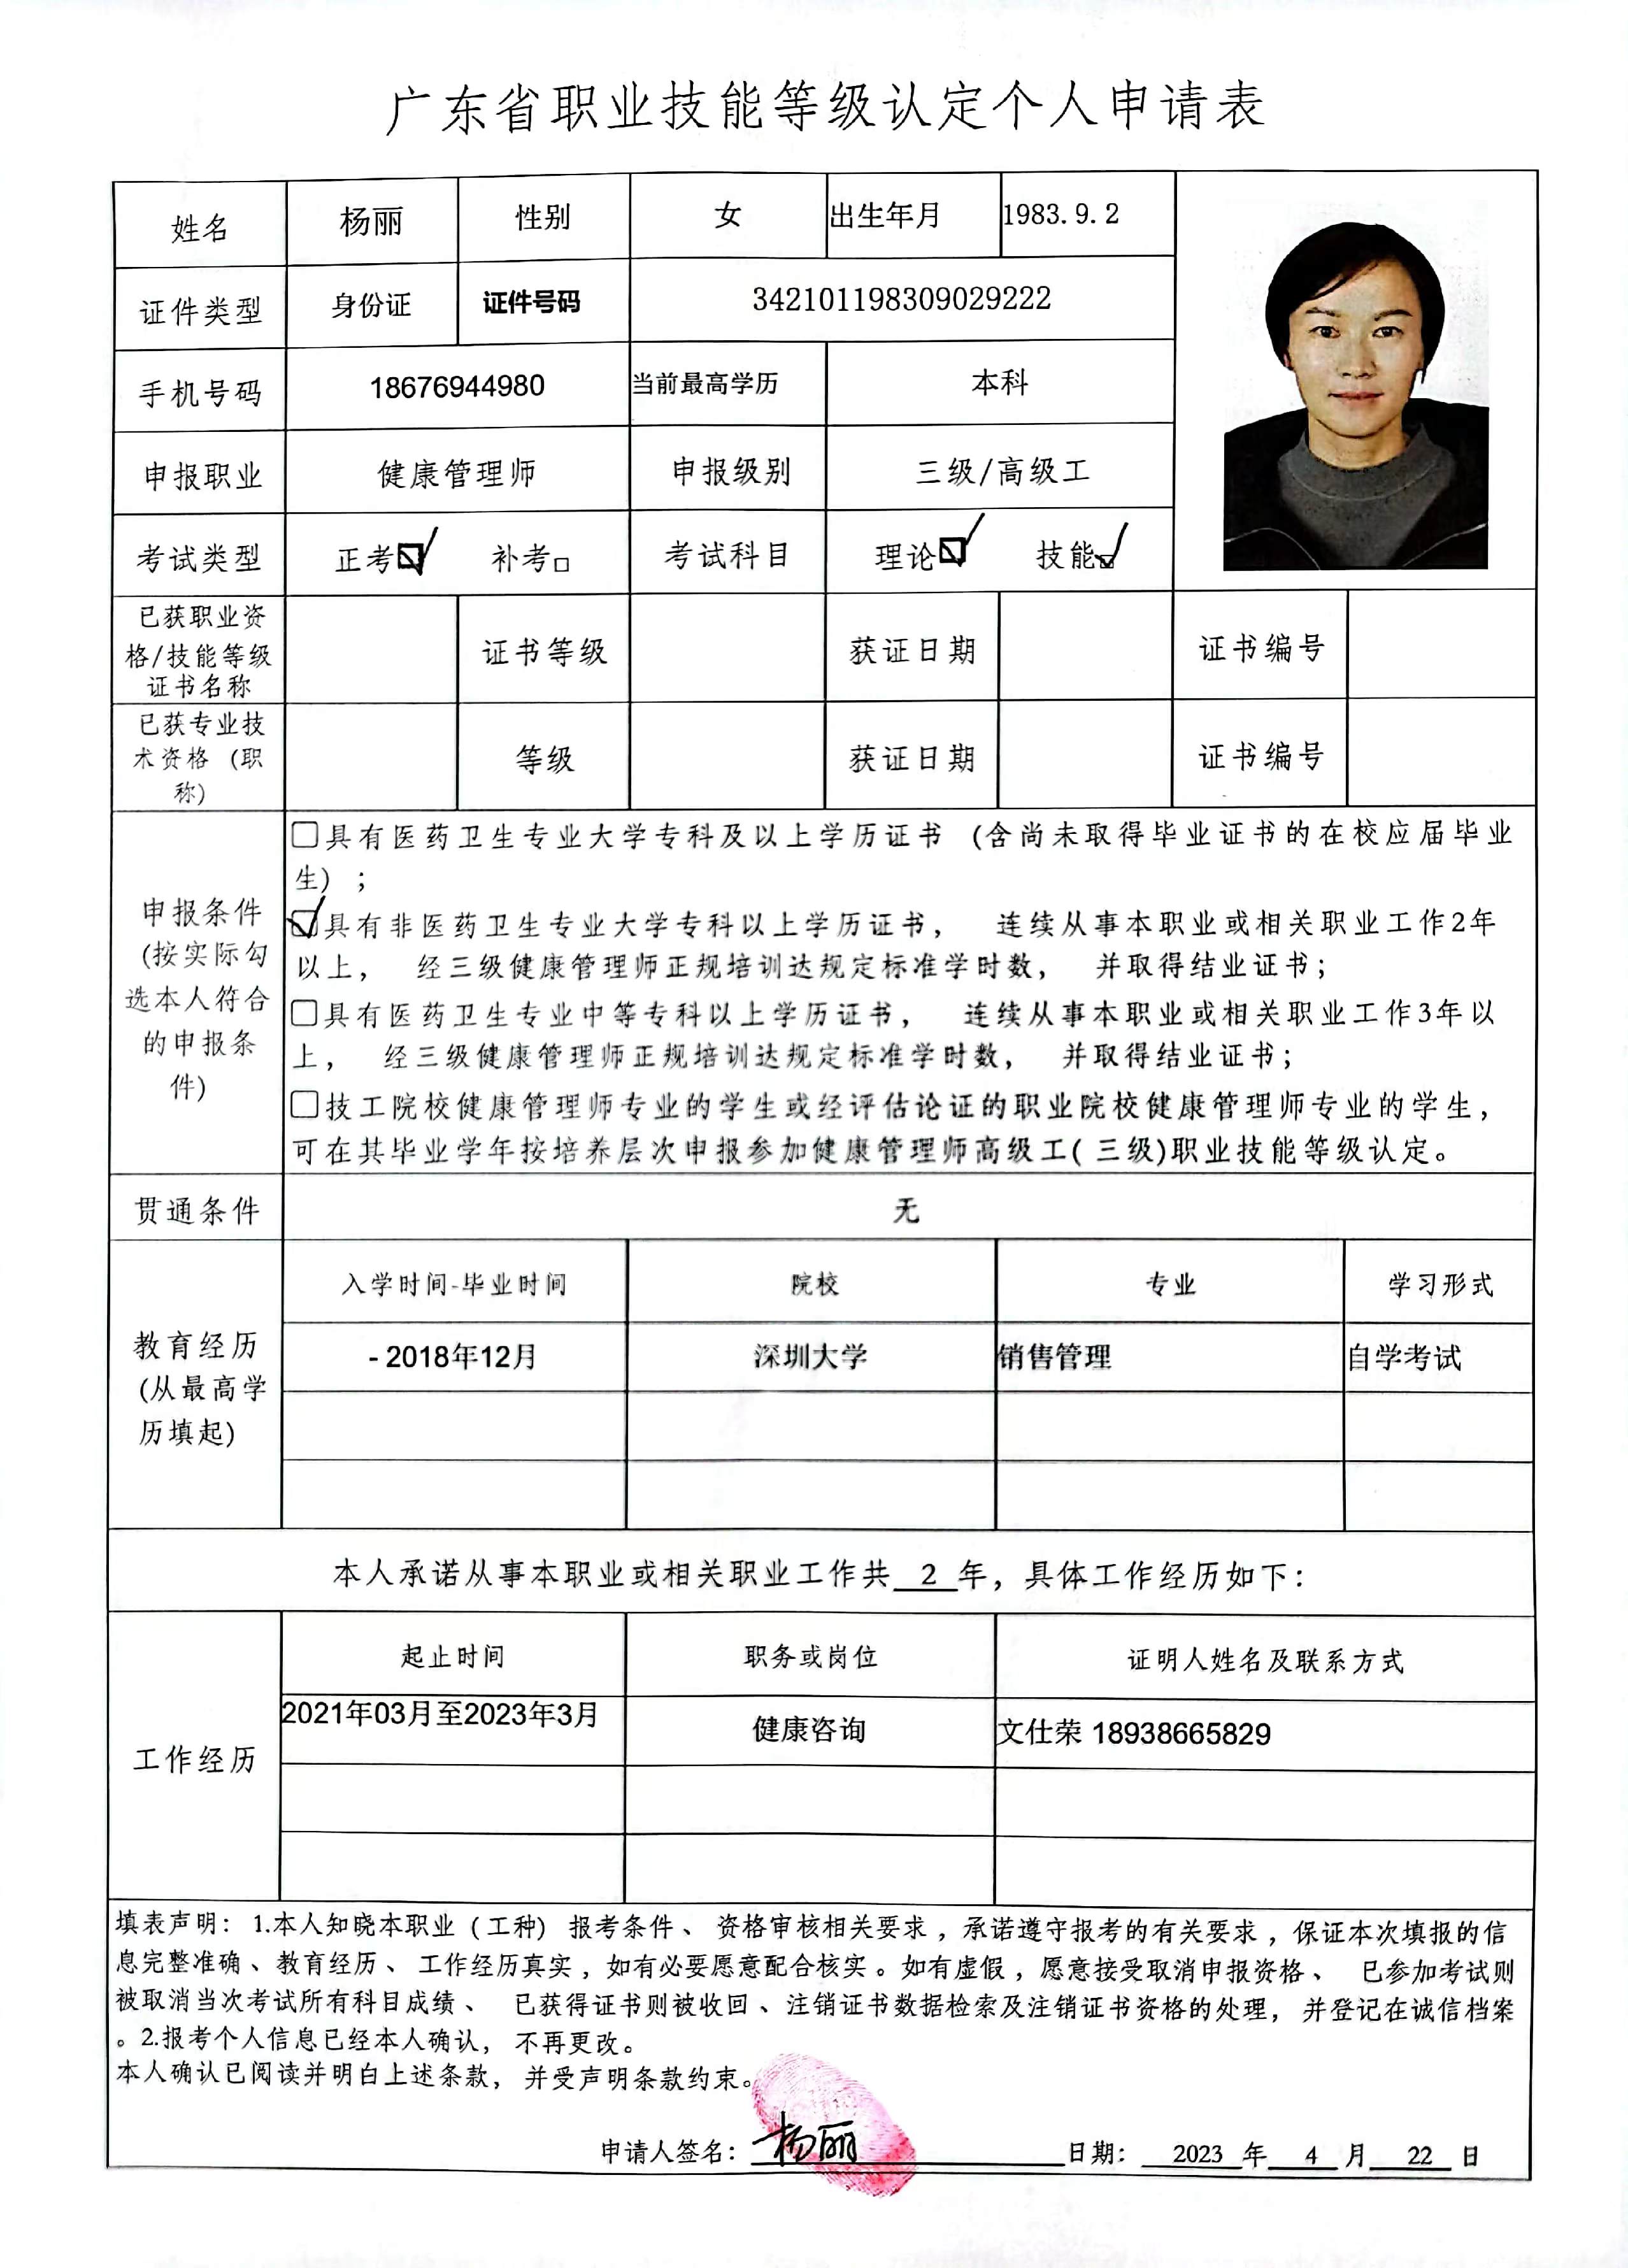 广东省职业技能等级认定个人申请表
姓名 杨丽 性别 女 出生年月 1983.9.2
证件类型 身份证 证件号码 342101198309029222
手机号码 18676944980 当前最高学历 本科
申报职业 健康管理师 申报级别 三级/高级工
考试类型 正考☑ 补考□ 考试科目 理论☑ 技能☑
已获职业资
格/技能等级
证书名称
证书等级 获证日期 证书编号
已获专业技
术资格 (职
称)
等级 获证日期 证书编号
申报条件
(按实际勾
选本人符合
的申报条
件)
□具有医药卫生专业大学专科及以上学历证书 (含尚未取得毕业证书的在校应届毕业
生) ;
☑具有非医药卫生专业大学专科以上学历证书, 连续从事本职业或相关职业工作2年
以上, 经三级健康管理师正规培训达规定标准学时数, 并取得结业证书;
□具有医药卫生专业中等专科以上学历证书, 连续从事本职业或相关职业工作3年以
上, 经三级健康管理师正规培训达规定标准学时数, 并取得结业证书;
□技工院校健康管理师专业的学生或经评估论证的职业院校健康管理师专业的学生,
可在其毕业学年按培养层次申报参加健康管理师高级工(三级)职业技能等级认定。
贯通条件 无
教育经历
(从最高学
历填起)
入学时间-毕业时间 院校 专业 学习形式
- 2018年12月 深圳大学 销售管理 自学考试
本人承诺从事本职业或相关职业工作共 2 年, 具体工作经历如下:
工作经历
起止时间 职务或岗位 证明人姓名及联系方式
2021年03月至2023年3月 健康咨询 文仕荣 18938665829
填表声明: 1.本人知晓本职业 (工种) 报考条件、 资格审核相关要求, 承诺遵守报考的有关要求, 保证本次填报的信
息完整准确、教育经历、 工作经历真实, 如有必要愿意配合核实。如有虚假, 愿意接受取消申报资格、 已参加考试则
被取消当次考试所有科目成绩、 已获得证书则被收回、注销证书数据检索及注销证书资格的处理, 并登记在诚信档案
。2.报考个人信息已经本人确认, 不再更改。
本人确认已阅读并明白上述条款, 并受声明条款约束。
申请人签名: 杨丽 日期: 2023 年 4 月 22 日